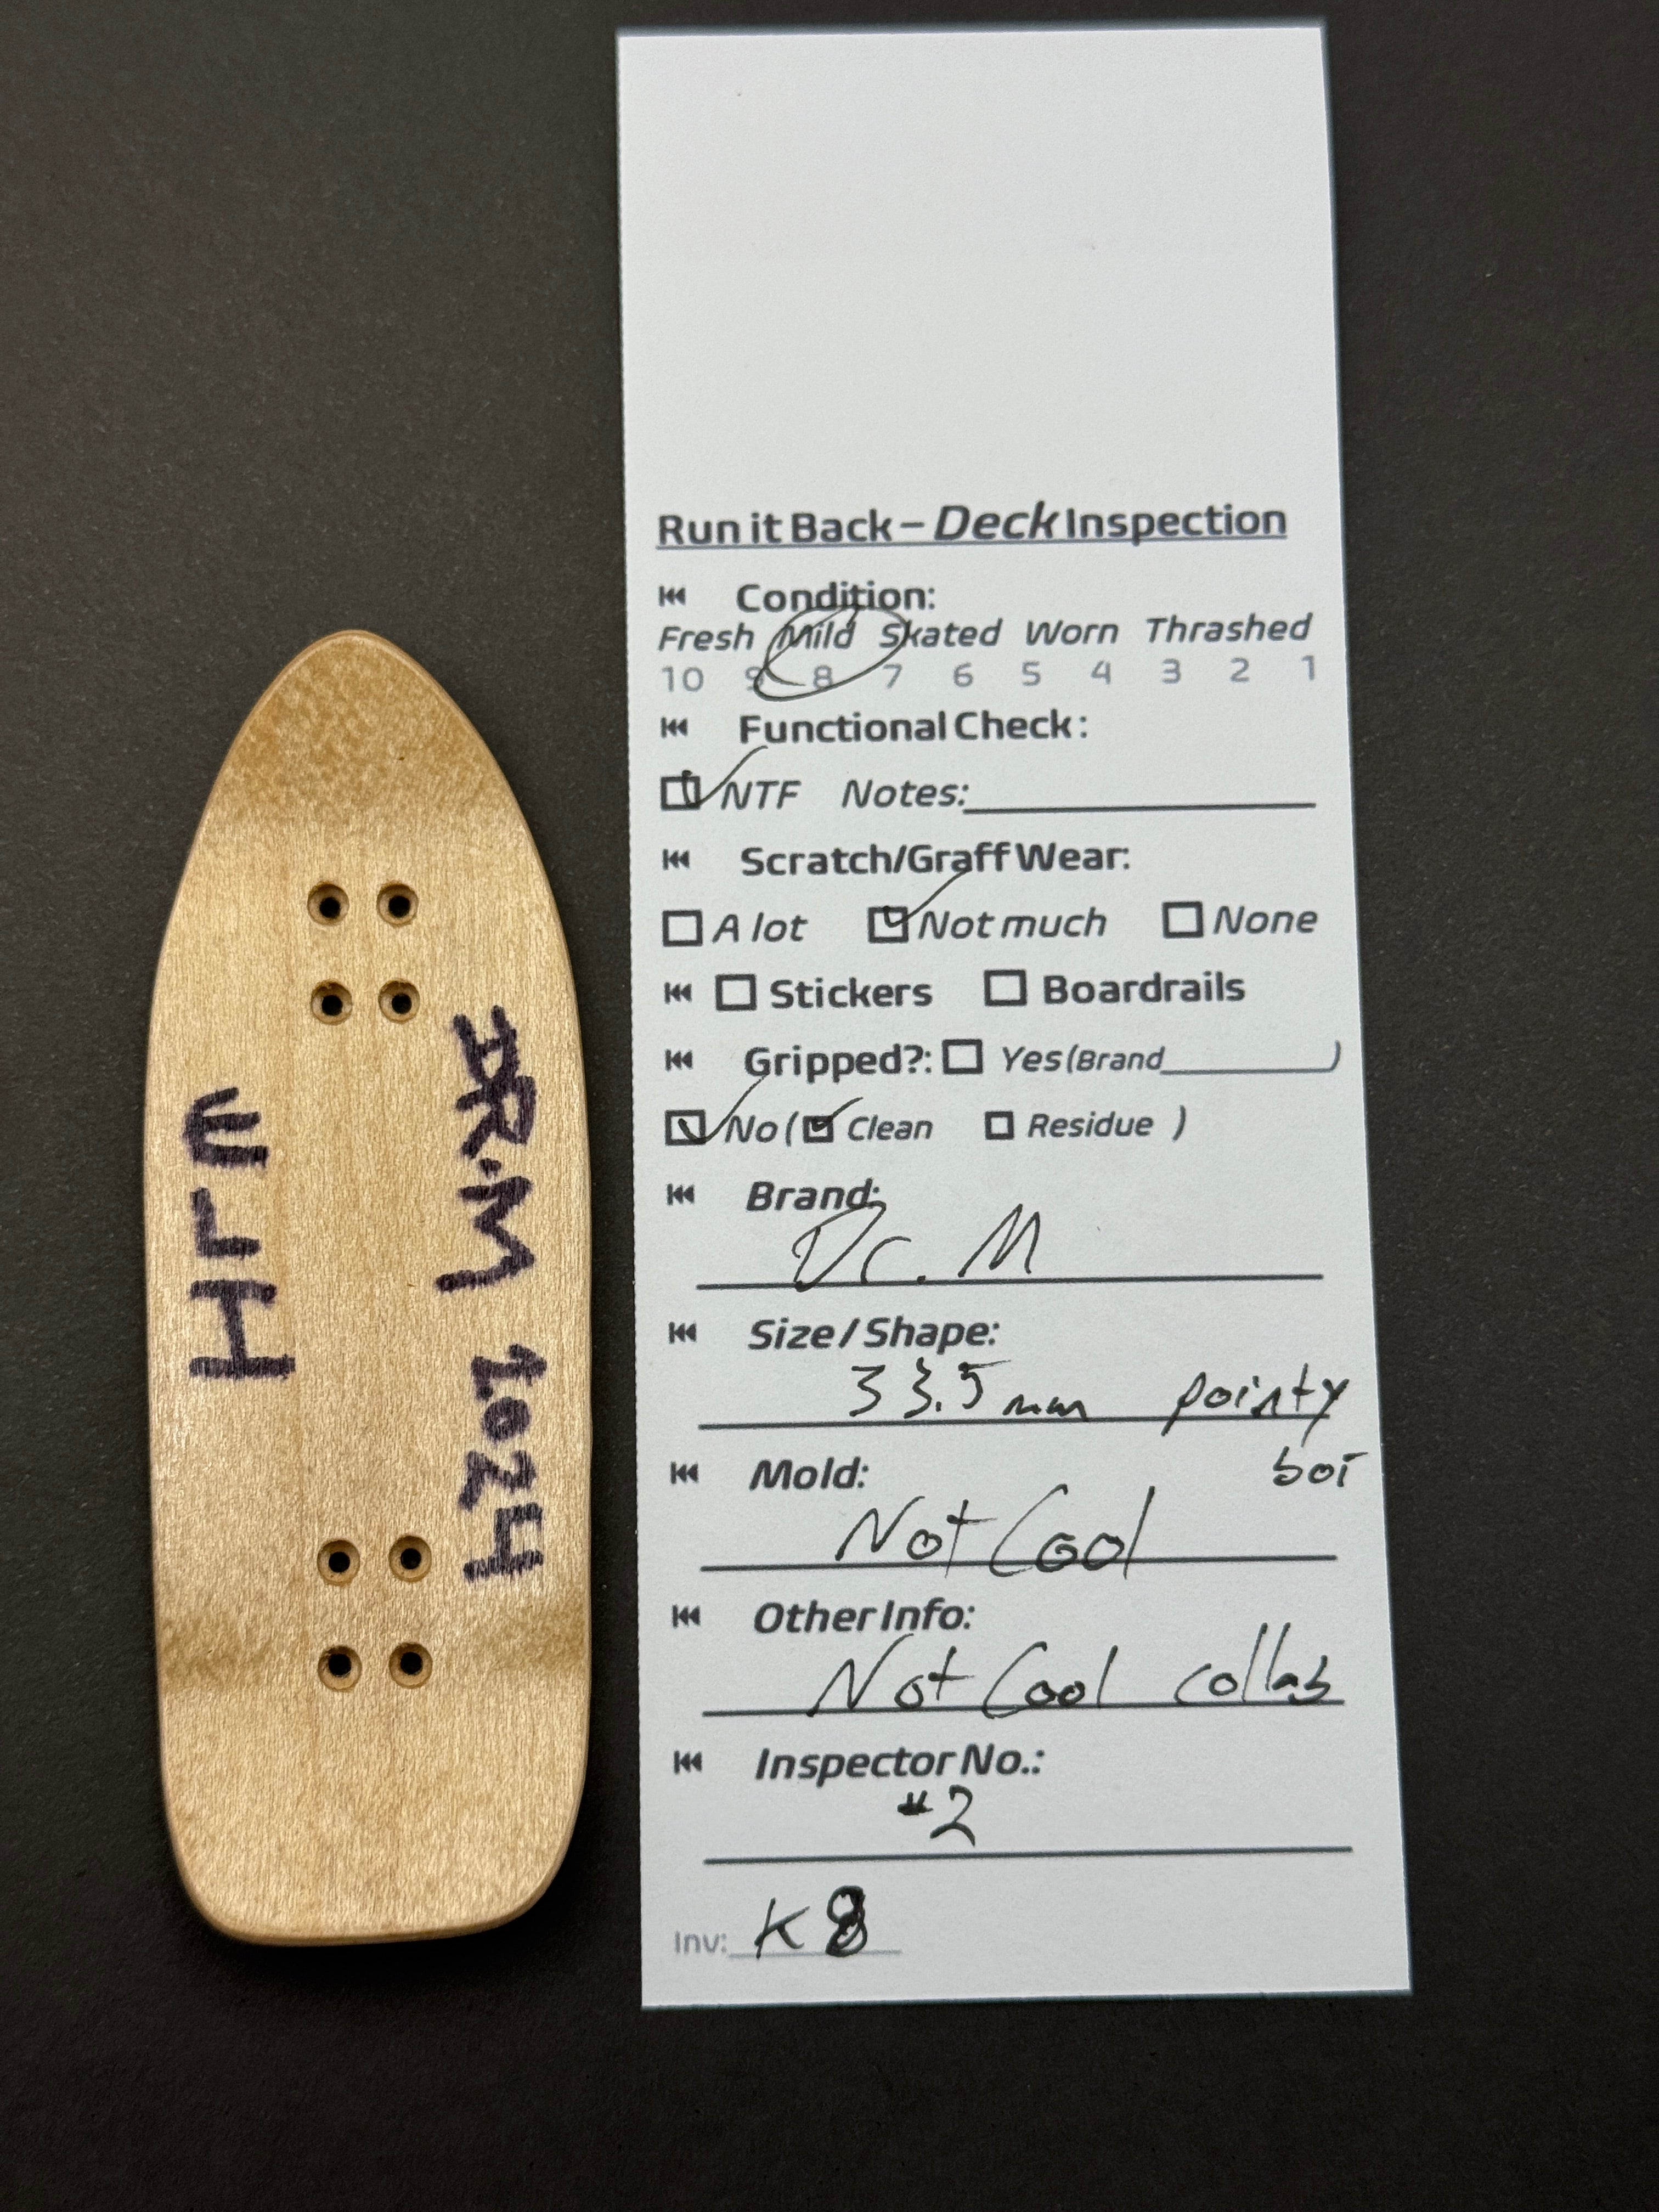 HLE
DR.M 2024
Run it Back – Deck Inspection
Condition:
Fresh Mild Skated Worn Thrashed
10 9 8 7 6 5 4 3 2 1
Functional Check:
NTF Notes:
Scratch/Graff Wear:
A lot Not much None
Stickers Boardrails
Gripped?: Yes (Brand )
No ( Clean Residue )
Brand:
Dr. M
Size / Shape:
33.5mm pointy
boi
Mold:
Not Cool
Other Info:
Not Cool collab
Inspector No.:
#2
Inv: K8